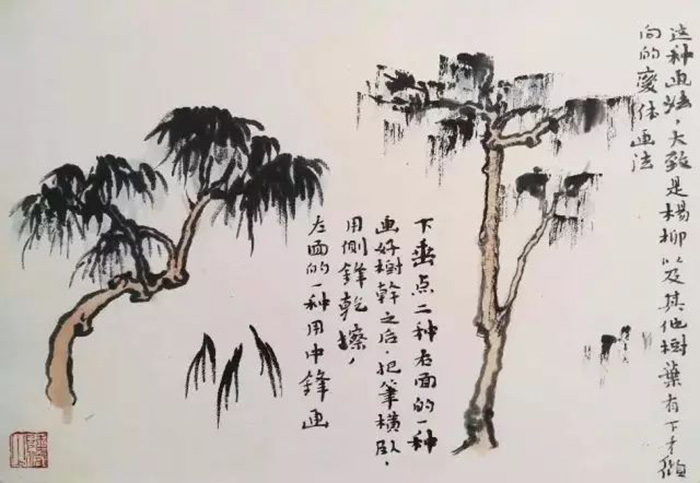 这种画法，大致是楊柳以及其他樹葉有下才傾
向的變体画法
下垂点二种右面的一种
画好樹幹之后，把筆横卧，
用側鋒乾擦，
左面的一种用中鋒画